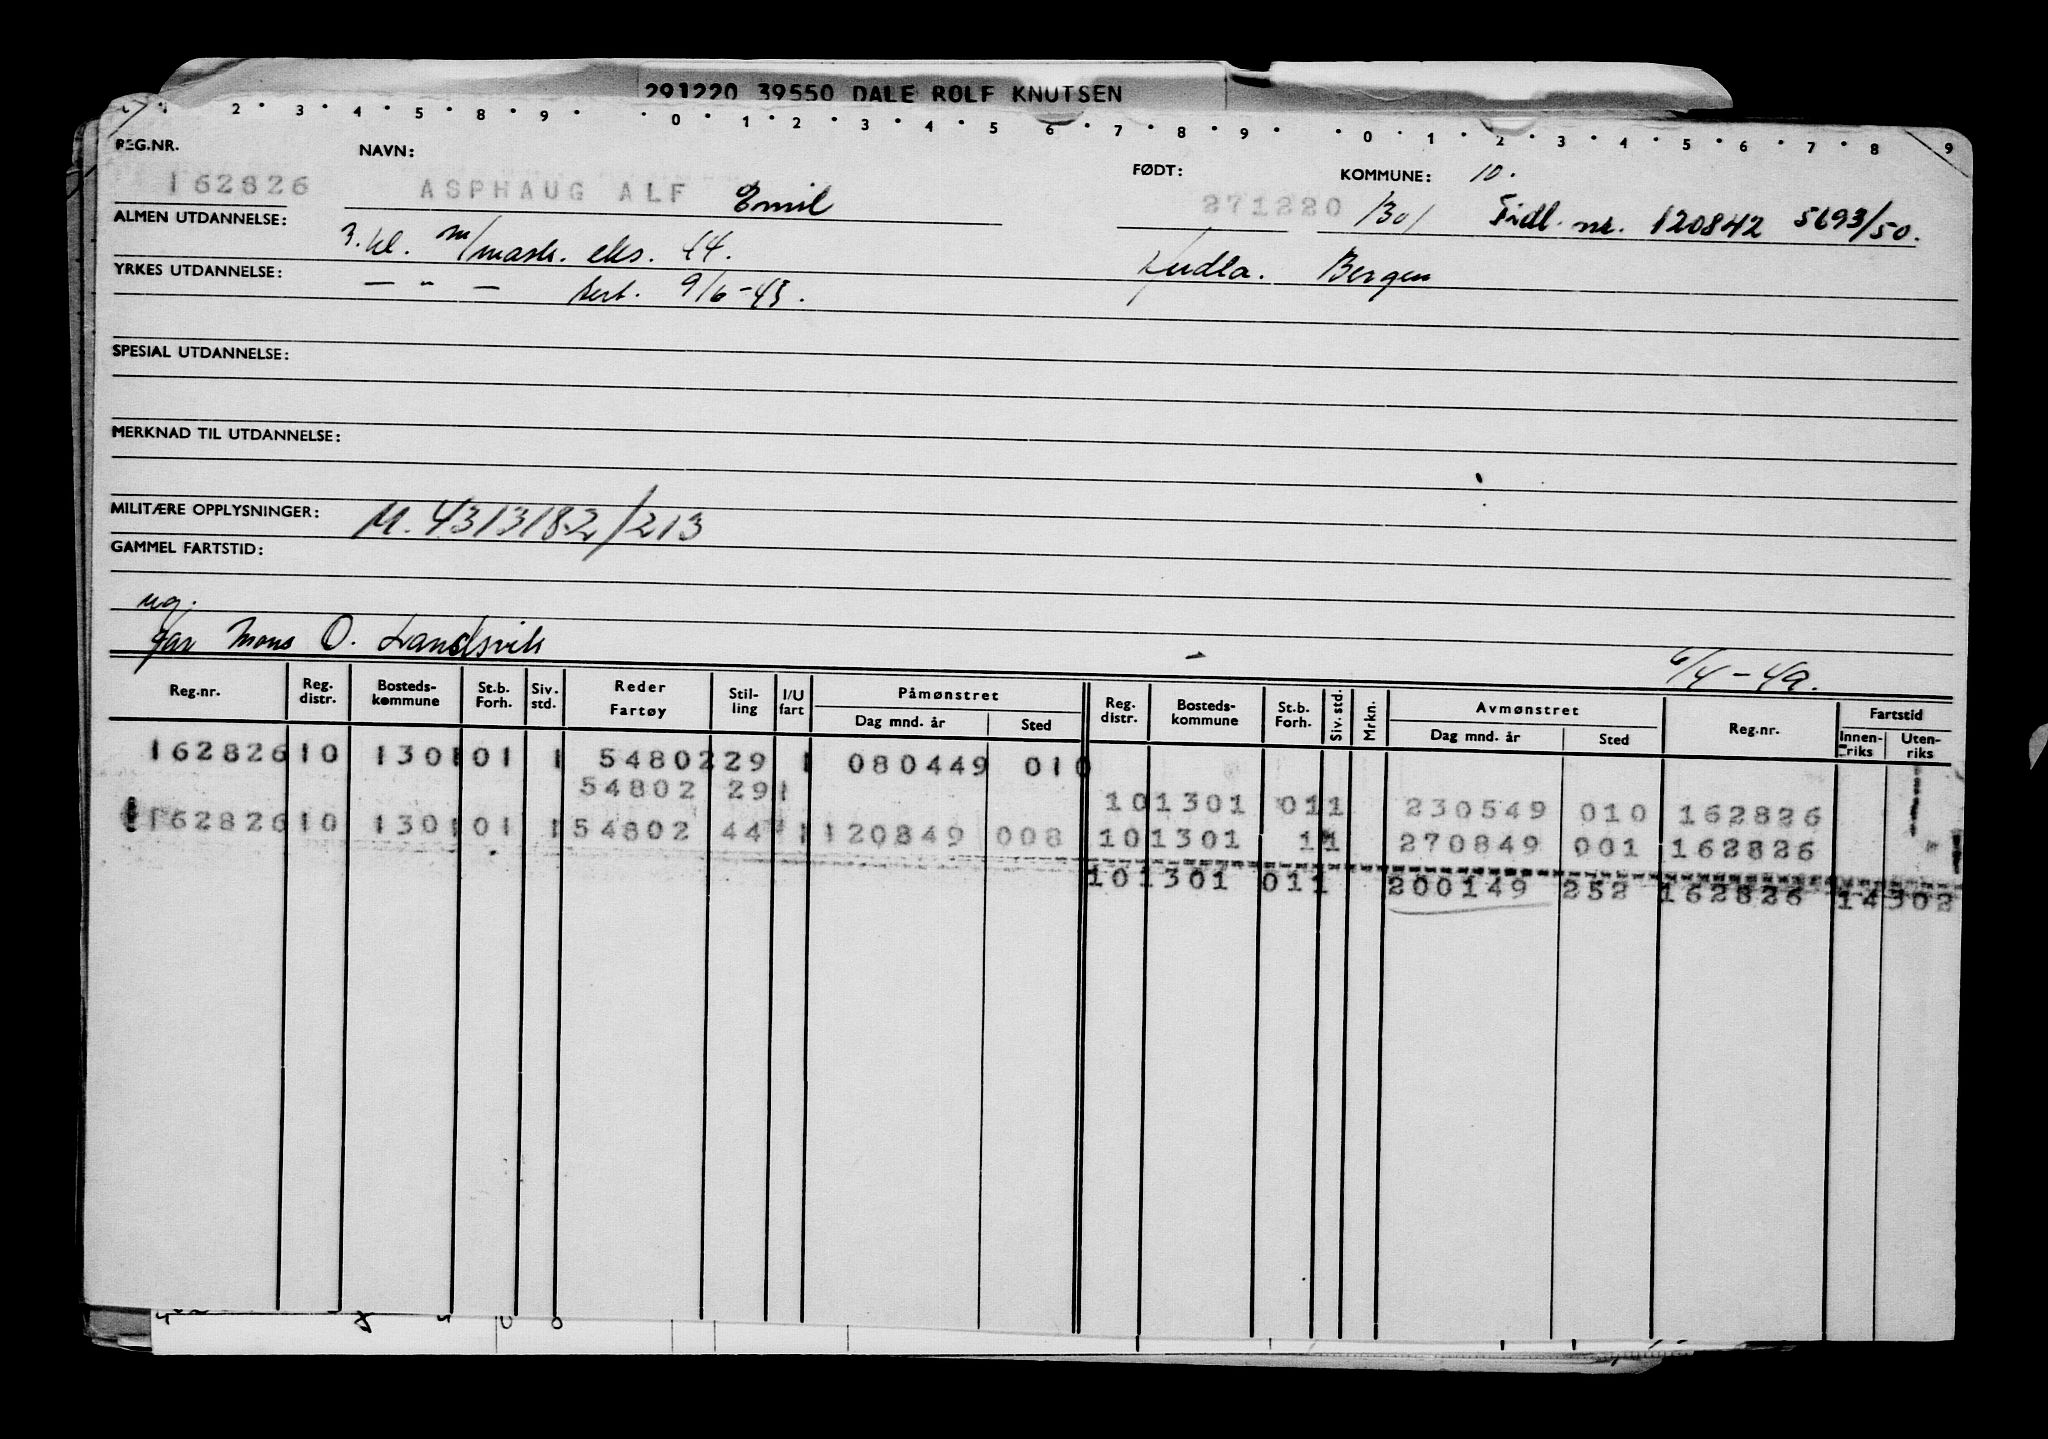 291220 39550 DALE ROLF KNUTSEN
2 · 3 · 4 · 5 · 8 · 9 · · 0 · 1 · 2 · 3 · 4 · 5 · 6 · 7 · 8 · 9 · · 0 · 1 · 2 · 3 · 4 · 5 · 6 · 7 · 8 · 9
REG.NR. NAVN: FØDT: KOMMUNE: 10.
162826 ASPHAUG ALF Emil 271220 1301 Fidl. nr. 120842 5693/50.
ALMEN UTDANNELSE: 3. kl. m/mask. eks. 44. Bergen
YRKES UTDANNELSE: — " — sert. 9/6-43.
SPESIAL UTDANNELSE:
MERKNAD TIL UTDANNELSE:
MILITÆRE OPPLYSNINGER: M. 4313182/213
GAMMEL FARTSTID:
ug.
far Mons O. Landsvik 6/4-49.
Reg.nr. Reg. distr. Bosteds-kommune St.b. Forh. Siv. std. Reder Fartøy Stil-ling I/U fart Påmønstret Dag mnd. år Sted Reg. distr. Bosteds-kommune St.b. Forh. Siv. std. Mrkn. Avmønstret Dag mnd. år Sted Reg.nr. Fartstid Innen-riks Uten-riks
162826 10 1301 01 1 54802 29 1 080449 010
54802 29 1 10 1301 01 1 230549 010 162826
162826 10 1301 01 1 54802 44 1 120849 008 10 1301 1 1 270849 001 162826
10 1301 01 1 200149 252 162826 14302